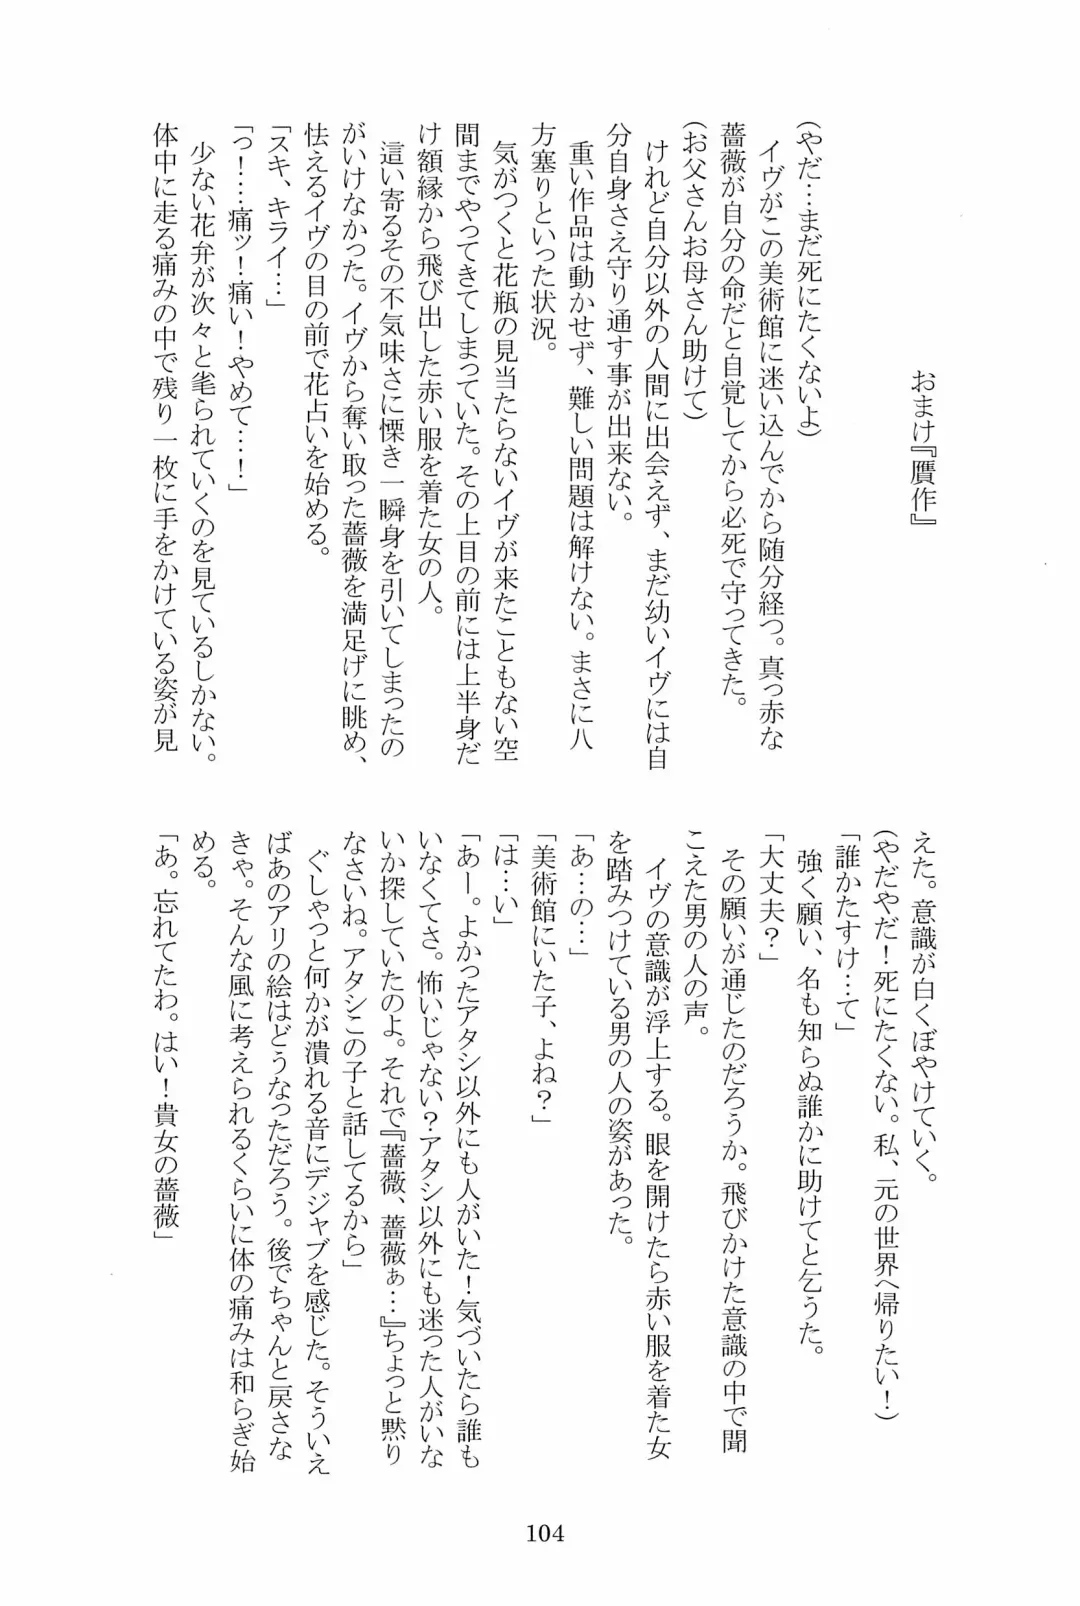 おまけ『贋作』
(やだ…まだ死にたくないよ)
イヴがこの美術館に迷い込んでから随分経つ。真っ赤な
薔薇が自分の命だと自覚してから必死で守ってきた。
(お父さんお母さん助けて)
けれど自分以外の人間に出会えず、まだ幼いイヴには自
分自身さえ守り通す事が出来ない。
重い作品は動かせず、難しい問題は解けない。まさに八
方塞りといった状況。
気がつくと花瓶の見当たらないイヴが来たこともない空
間までやってきてしまっていた。その上目の前には上半身だ
け額縁から飛び出した赤い服を着た女の人。
這い寄るその不気味さに慄き一瞬身を引いてしまったの
がいけなかった。イヴから奪い取った薔薇を満足げに眺め、
怯えるイヴの目の前で花占いを始める。
「スキ、キライ…」
「っ！…痛ッ！痛い！やめて…！」
少ない花弁が次々と毟られていくのを見ているしかない。
体中に走る痛みの中で残り一枚に手をかけている姿が見
えた。意識が白くぼやけていく。
(やだやだ！死にたくない。私、元の世界へ帰りたい！)
「誰かたすけ…て」
強く願い、名も知らぬ誰かに助けてと乞うた。
「大丈夫？」
その願いが通じたのだろうか。飛びかけた意識の中で聞
こえた男の人の声。
イヴの意識が浮上する。眼を開けたら赤い服を着た女
を踏みつけている男の人の姿があった。
「あ…の…」
「美術館にいた子、よね？」
「は…い」
「あー。よかったアタシ以外にも人がいた！気づいたら誰も
いなくてさ。怖いじゃない？アタシ以外にも迷った人がいな
いか探していたのよ。それで『薔薇、薔薇ぁ…』ちょっと黙り
なさいね。アタシこの子と話してるから」
ぐしゃっと何かが潰れる音にデジャブを感じた。そういえ
ばあのアリの絵はどうなっただろう。後でちゃんと戻さな
きゃ。そんな風に考えられるくらいに体の痛みは和らぎ始
める。
「あ。忘れてたわ。はい！貴女の薔薇」
104